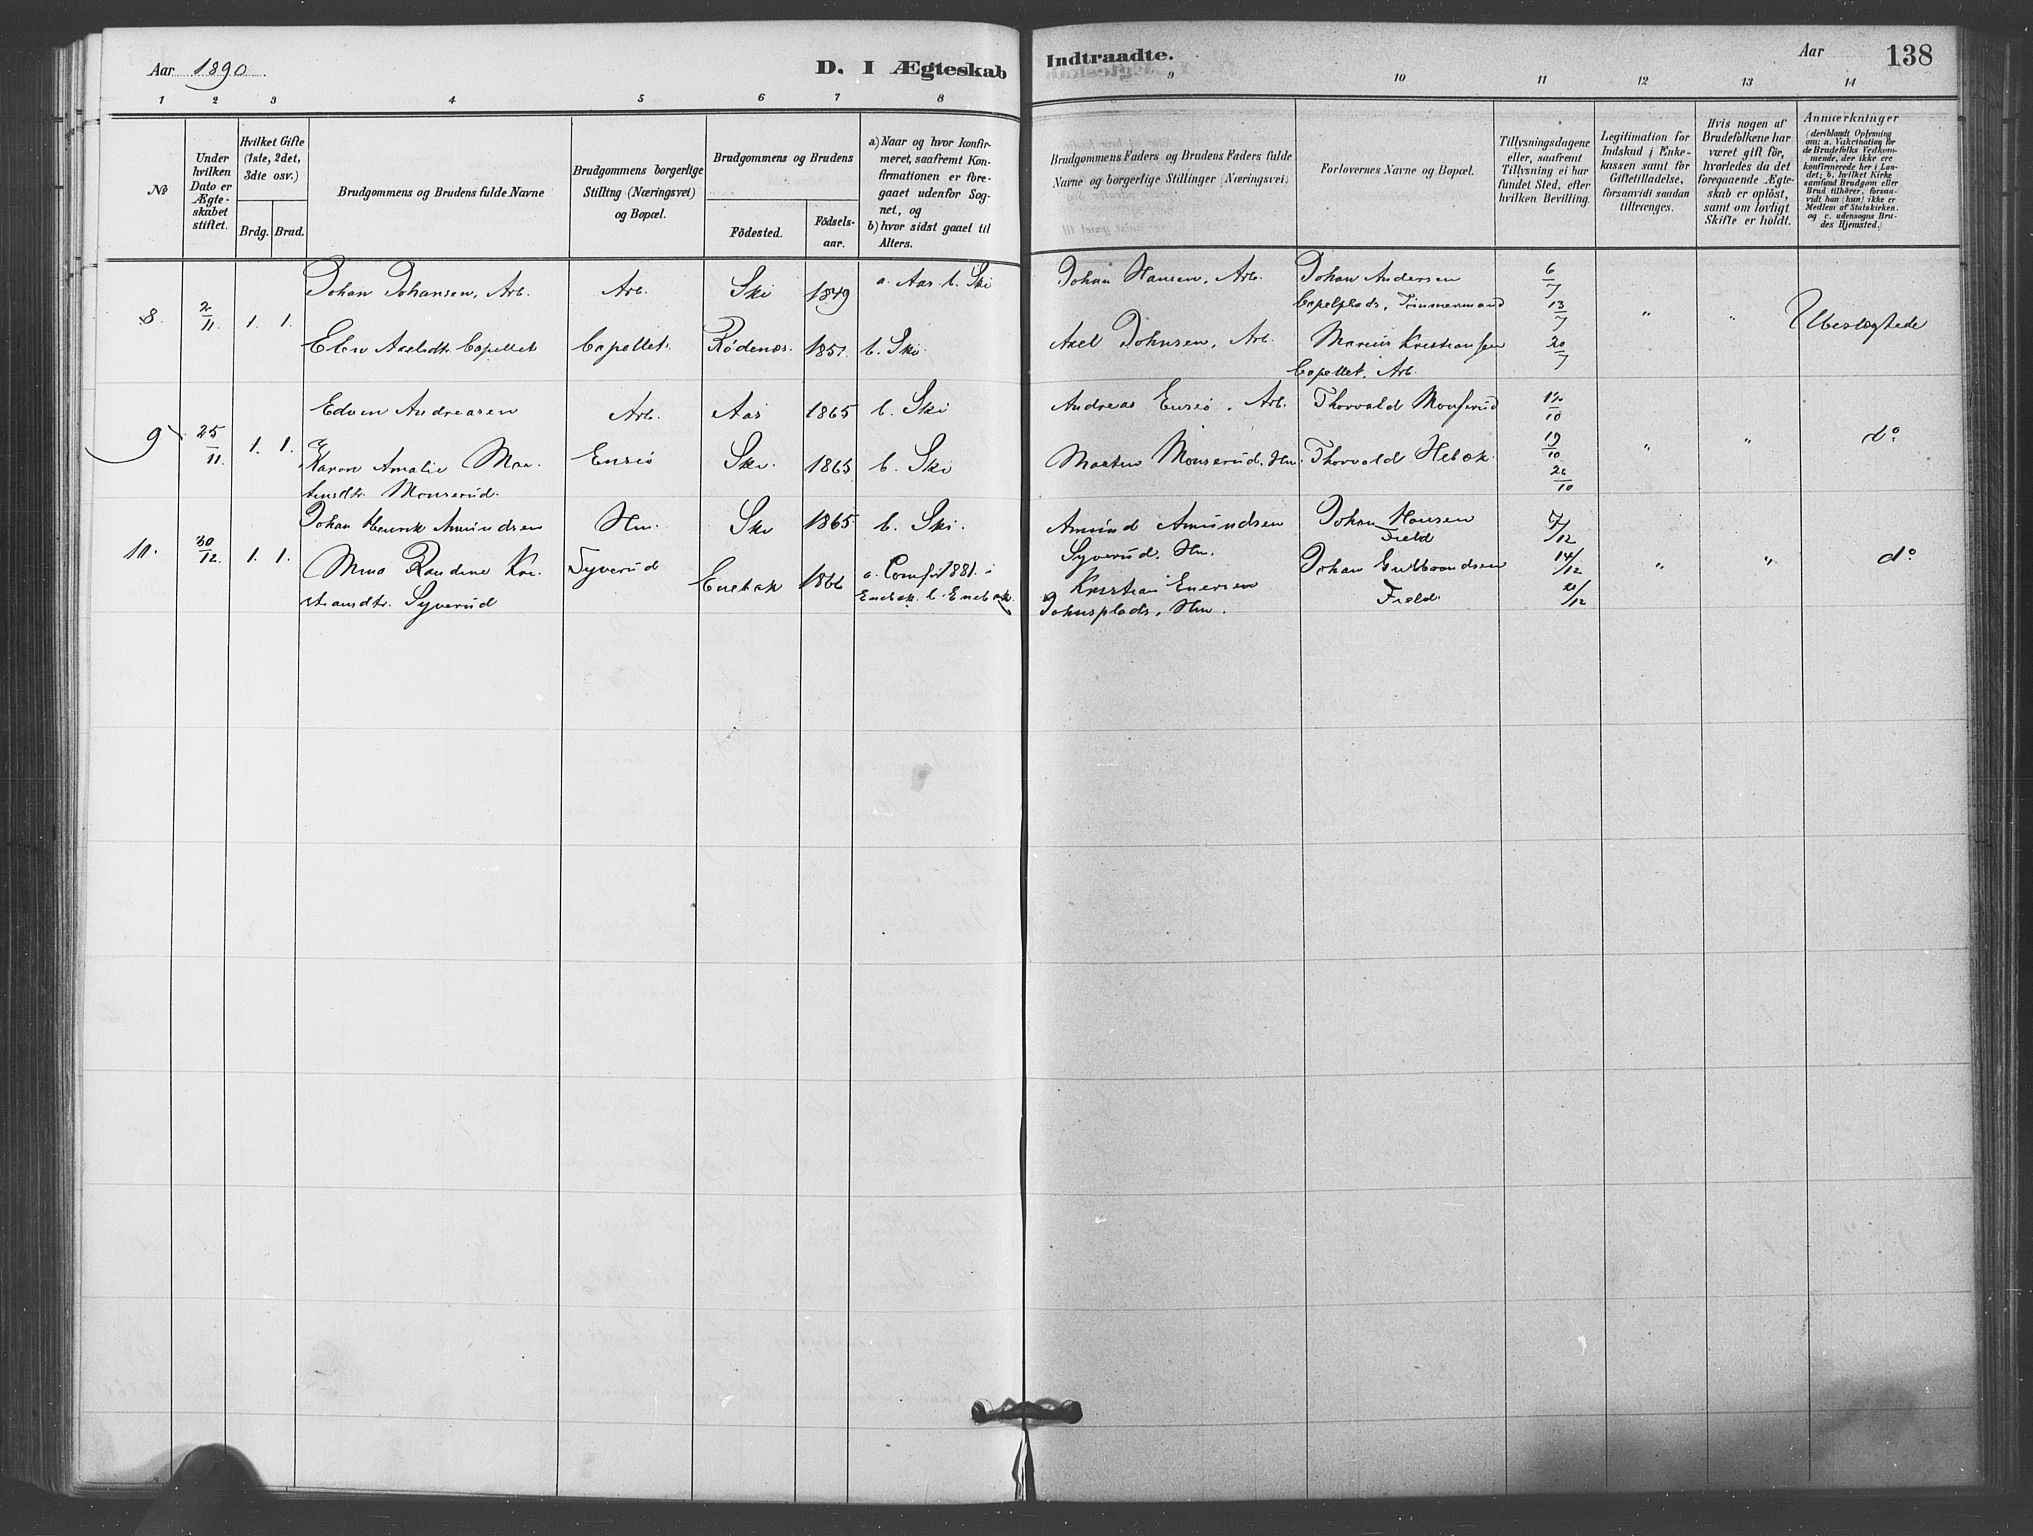 Aar 1890.
D. I Ægteskab
Indtraadte.
Aar
138
1 2 3 4 5 6 7 8
9 10 11 12 13 14
No
Under hvilken Dato er Ægteskabet stiftet.
Hvilket Gifte (1ste, 2det, 3die osv.)
Brdg. Brud.
Brudgommens og Brudens fulde Navne
Brudgommens borgerlige Stilling (Næringsvei) og Bopæl.
Brudgommens og Brudens
Födested.
Födselsaar.
a) Naar og hvor konfirmeret, saafremt Konfirmationen er foregaaet udenfor Sognet, og
b) hvor sidst gaaet til Alters.
Brudgommens Faders og Brudens Faders fulde Navne og borgerlige Stillinger (Næringsvei)
Forlovernes Navne og Bopæl.
Tillysningsdagene eller, saafremt Tillysning ei har fundet Sted, efter hvilken Bevilling.
Legitimation for Indskud i Enkekassen samt for Giftetilladelse, forsaavidt saadan tiltrænges.
Hvis nogen af Brudefolkene har været gift för, hvorledes da det foregaaende Ægteskab er oplöst, samt om lovligt Skifte er holdt.
Anmærkninger
(deriblandt Oplysning om: a. Vakcination for de Brudefolks Vedkommende, der ikke ere konfirmerede her i Landet; b. hvilket Kirkesamfund Brudgom eller Brud tilhörer, forsaavidt han (hun) ikke er Medlem af Statskirken, og c. udensogns Brudes Hjemsted.)
8. 2/11 1. 1.
Johan Johansen, Arb.
Arb. Ski 1849 a. Aas b. Ski
Elen Axelsdt. Capellet
Capellet. Rödenæs. 1851. b. Ski.
Johan Hansen, Arb.
Axel Johnsen, Arb.
Johan Andersen
Capelplads, Tømmermand
Marius Kristiansen
Capellet, Arb.
6/7
13/7
20/7
" " Ubeslægtede
9 25/11. 1. 1.
Edvin Andreasen
Arb. Aas 1865 b. Ski
Karen Amalie Mar
tensdtr. Monserud.
Ensiö Ski. 1865 b. Ski
Andreas Ensiö, Arb.
Marten Monserud, Hm.
Thorvald Monserud
Thorvald Hebæk.
12/10
19/10
26/10
" " do
10. 30/12. 1. 1.
Johan Henrik Amundsen
Hm. Ski 1865 b. Ski.
Mina Randine Kri
stiansdtr. Syverud
Syverud Enebak 1866 a. Comf. 1881. i
Enebak. b. Enebak.
Amund Amundsen
Syverud, Hm.
Kristian Enersen
Johnsplads, Hm.
Johan Hansen
Field
Johan Gulbrandsen
Field
7/12
14/12
21/12
" " do